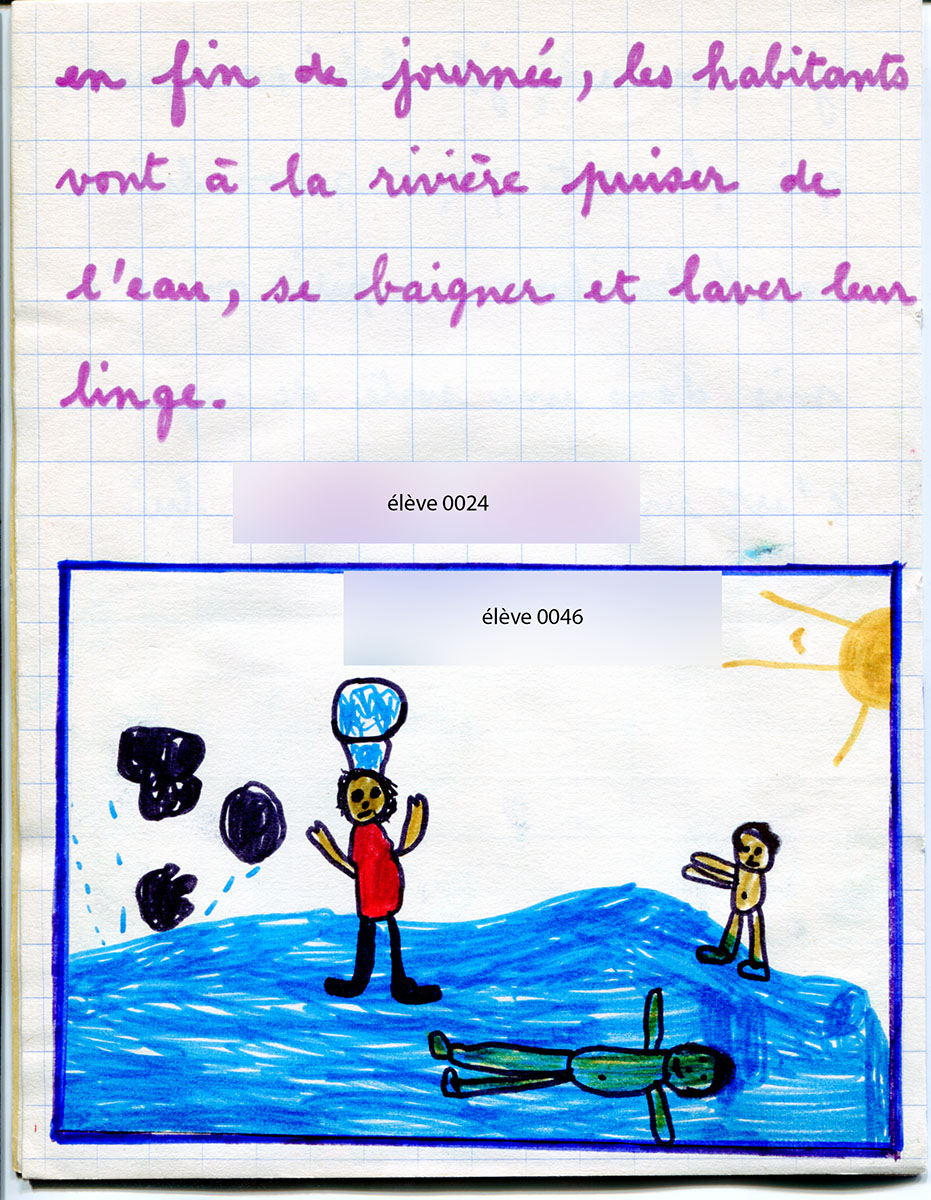 en fin de journée, les habitants
vont à la rivière puiser de
l'eau, se baigner et laver leur
linge.
élève 0024
élève 0046